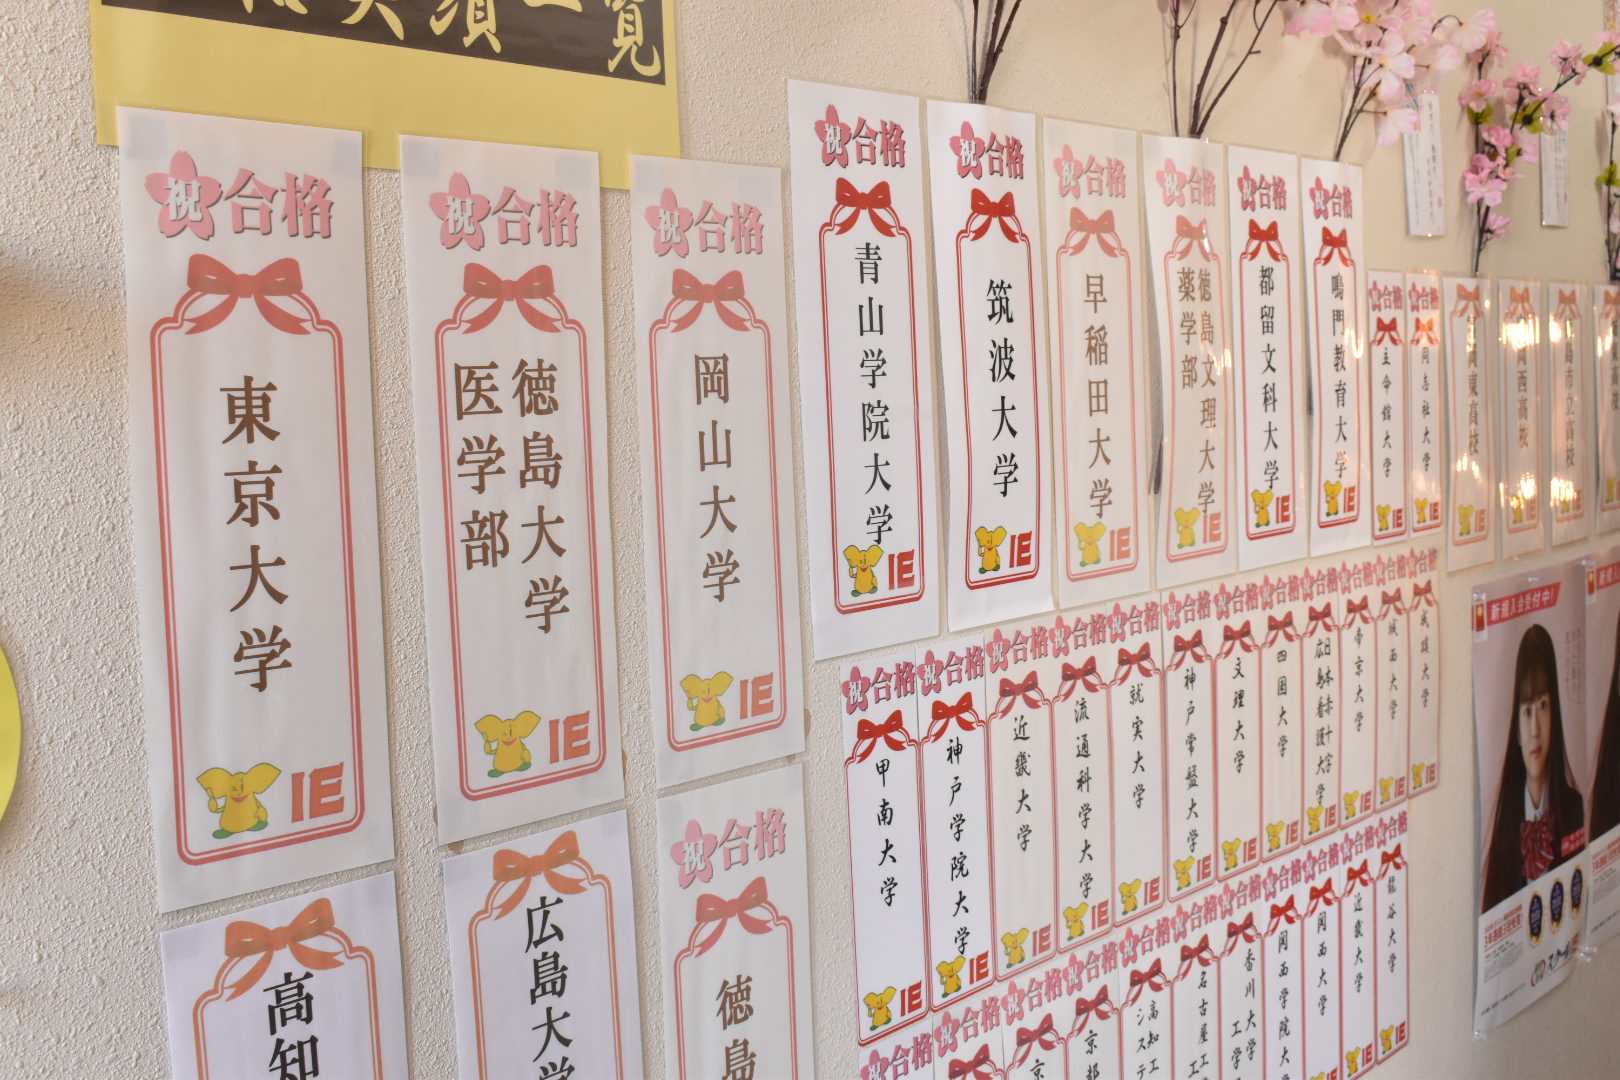 績一覧
祝合格
東京大学
IE
祝合格
徳島大学
医学部
IE
祝合格
岡山大学
IE
祝合格
青山学院大学
IE
祝合格
筑波大学
IE
祝合格
早稲田大学
IE
祝合格
徳島文理大学
薬学部
IE
祝合格
都留文科大学
IE
祝合格
鳴門教育大学
IE
祝合格
立命館大学
IE
祝合格
同志社大学
IE
岡東高校
西高校
島市立高校
高知
広島大学
祝合格
徳島
祝合格
甲南大学
IE
祝合格
神戸学院大学
IE
祝合格
近畿大学
IE
祝合格
流通科学大学
IE
祝合格
就実大学
IE
祝合格
神戸常盤大学
IE
祝合格
文理大学
IE
祝合格
四国大学
IE
祝合格
日本赤十字
広島看護大学
IE
祝合格
帝京大学
IE
祝合格
城西大学
IE
祝合格
成蹊大学
IE
祝合格
祝合格
祝合格
京
祝合格
京都
祝合格
高知工
システ
祝合格
名古屋工
祝合格
香川大学
工学
祝合格
関西学院大
祝合格
関西大学
祝合格
近畿大学
IE
祝合格
龍谷大学
IE
新規入会受付中!
スクール